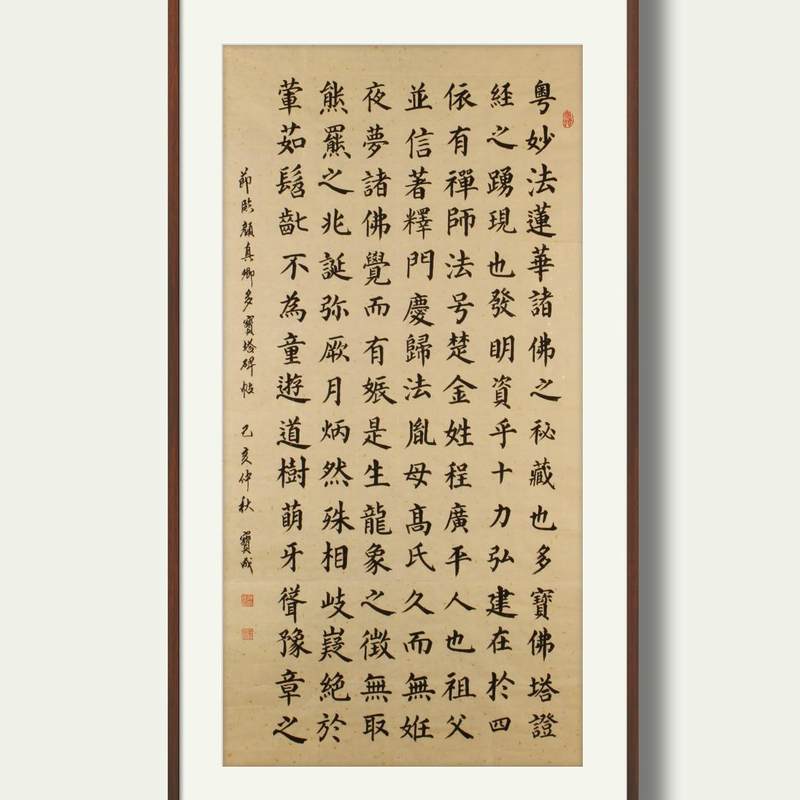 粤妙法蓮華諸佛之秘藏也多寶佛塔證
經之踴現也發明資乎十力弘建在於四
依有禪師法号楚金姓程廣平人也祖父
並信著釋門慶歸法胤母髙氏久而無姙
夜夢諸佛覺而有娠是生龍象之徵無取
熊羆之兆誕弥厥月炳然殊相岐嶷絶於
葷茹髫齔不為童遊道樹萌牙聳豫章之
節臨顏真卿多寳塔碑帖 己亥仲秋 寳成